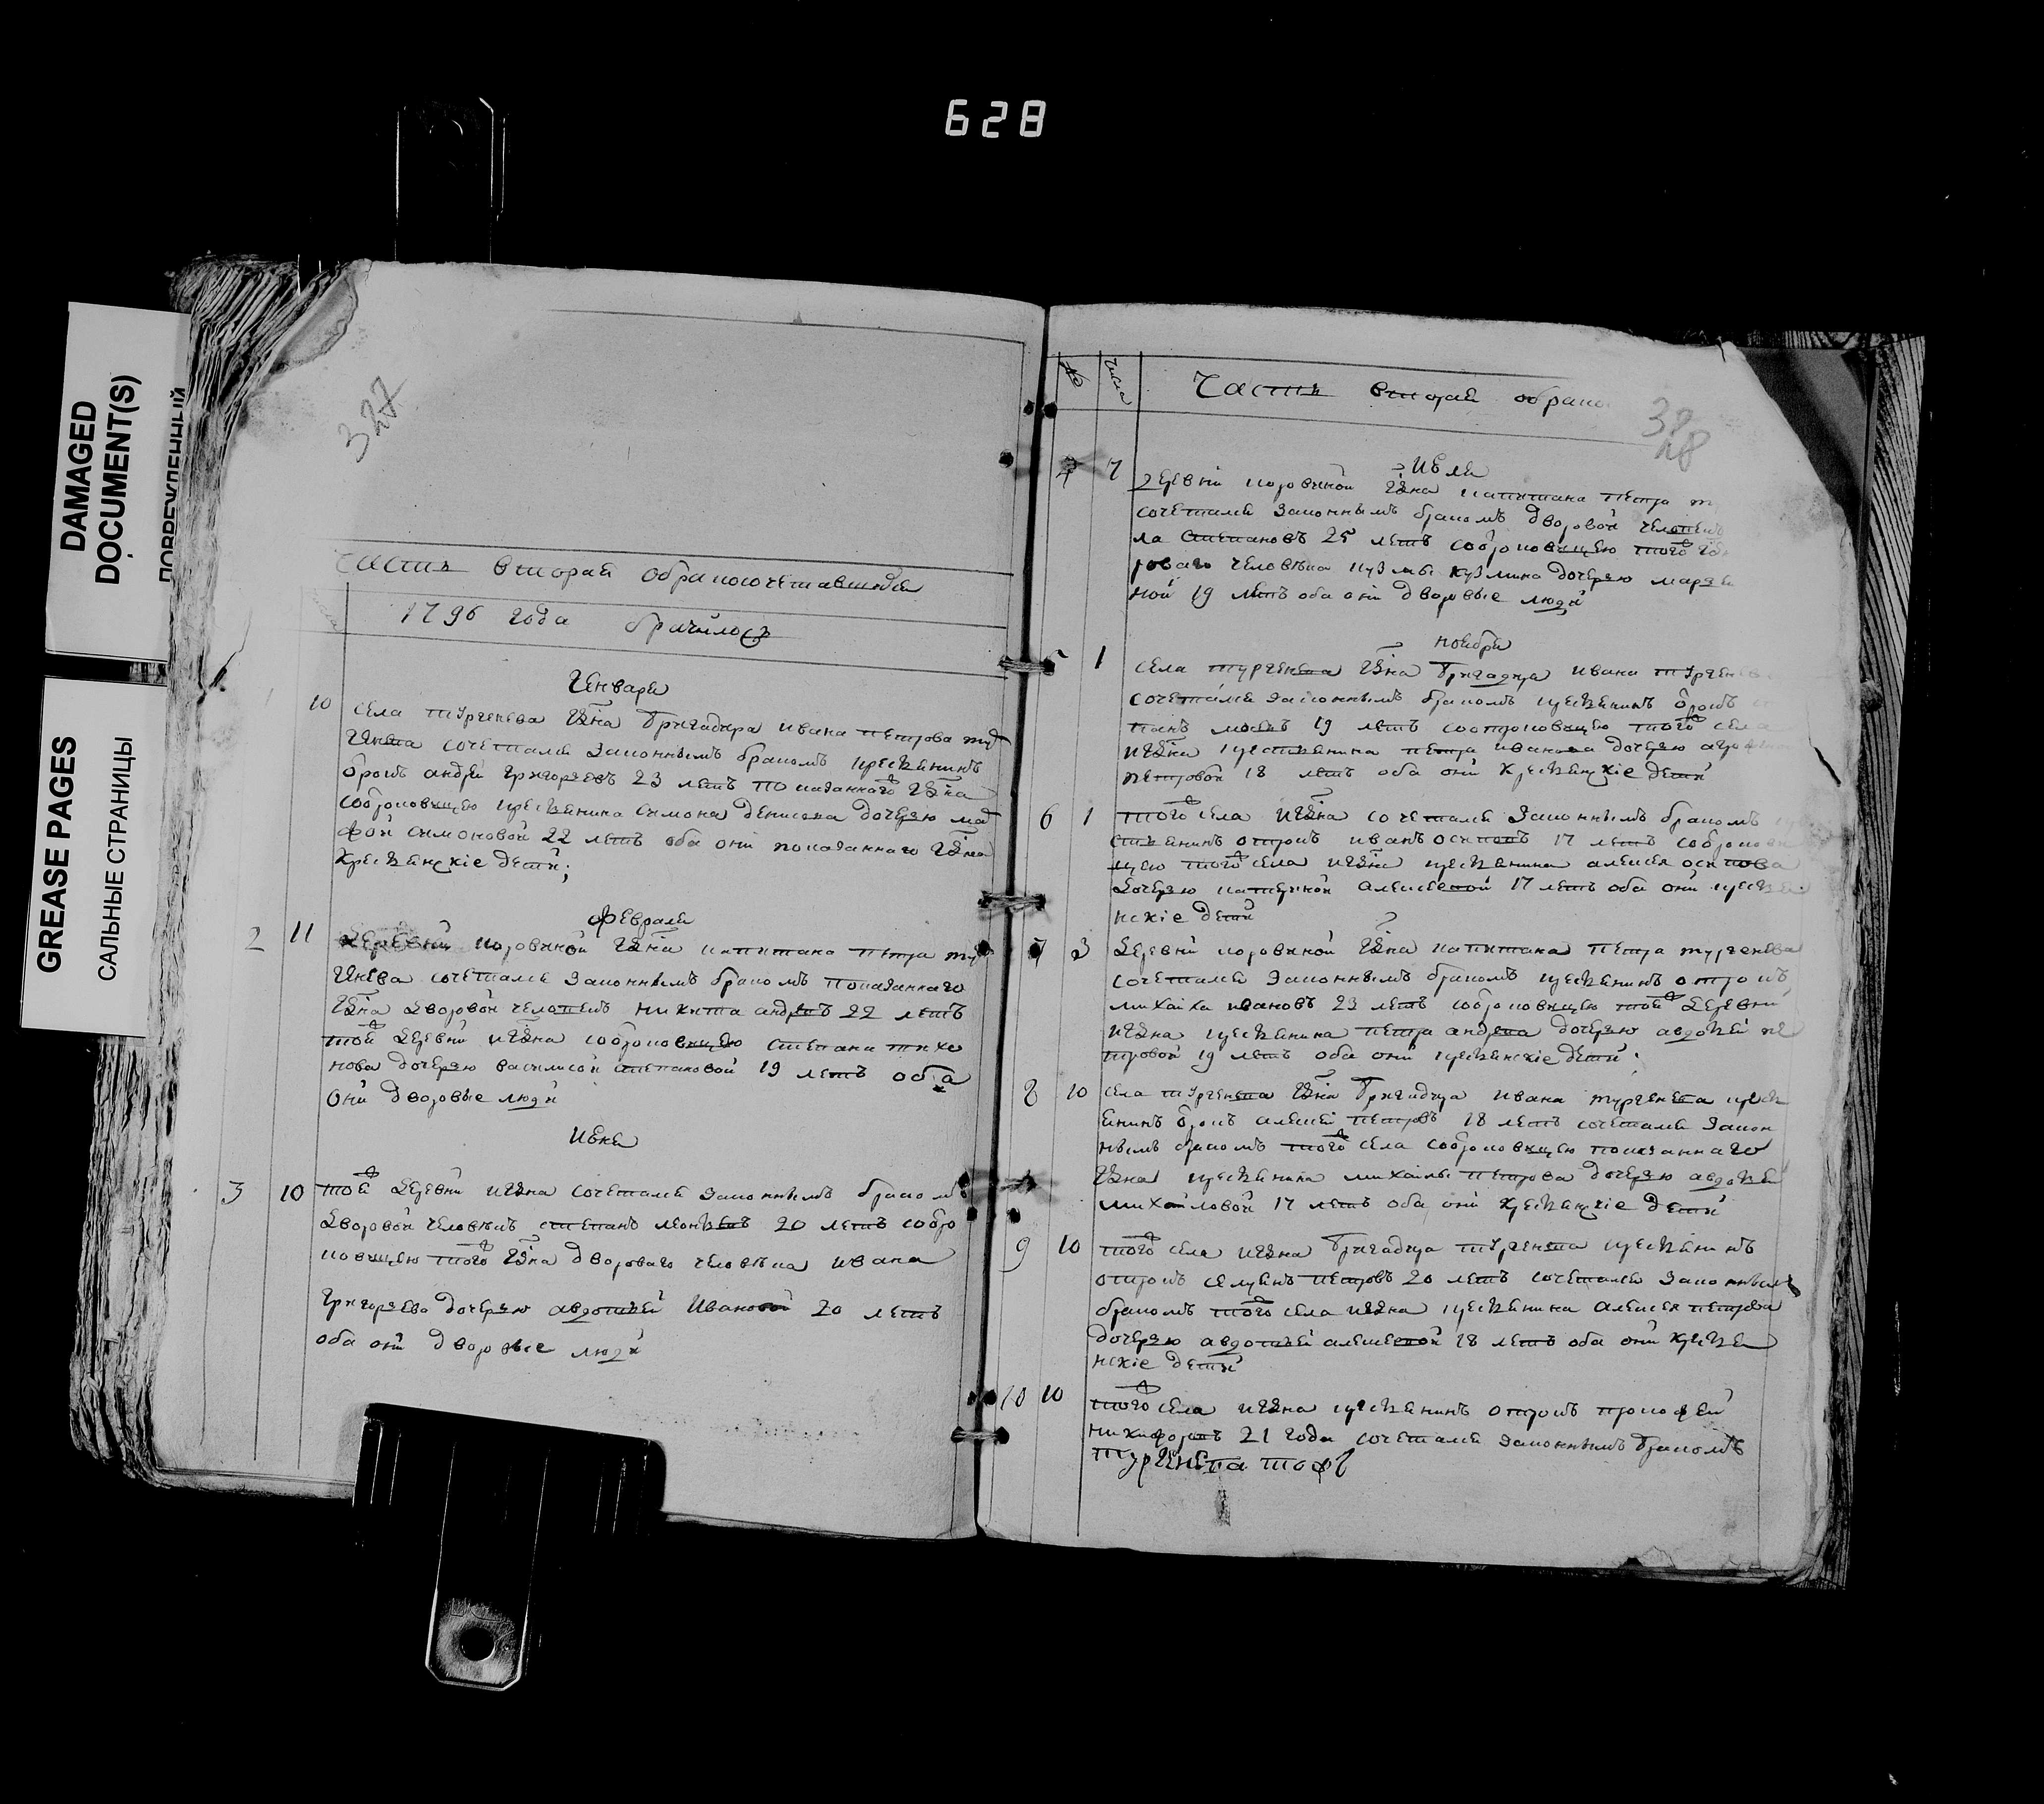 628
DAMAGED
DOCUMENT(S)
ПОВРЕЖДЕННЫЙ
GREASE PAGES
САЛЬНЫЕ СТРАНИЦЫ
327
часть вторая обракосочетавшихся
1796 года брачилось
Генваря
10 села тургенева Гдна бригадира ивана петрова тур
генева сочетался законнымъ бракомъ крестьянинъ
отрокъ андрей григорьевъ 23 летъ показанного Гдна
соотроковицею крестьянина симона денисова дочерью мар
фой симоновой 22 летъ оба они показанного Гдна
крестьянские дети;
февраля
2 11 деревни коровиной Гдна капитана петра тур
генева сочетался законнымъ бракомъ показанного
Гдна дворовой человекъ никита андреевъ 22 летъ
той деревни и Гдна соотроковицею степана тихо
нова дочерью василисой степановой 19 летъ оба
они дворовые люди
июня
3 10 той деревни и Гдна сочетался законнымъ бракомъ
дворовой человекъ степанъ 20 летъ соотро
ковицею того Гдна дворового человека ивана
григорьева дочерью авдотьей ивановой 20 летъ
оба они дворовые люди
№ числа часть вторая о брако
328
июля
4 7 деревни коровиной Гдна капитана петра т
сочетался законнымъ бракомъ дворовой человекъ
ла степановъ 25 летъ соотроковицею того Гдн
рового человека кузмы кузмина дочерью марьей
ной 19 летъ оба они дворовые люди
ноября
5 1 села тургенева Гдна бригадира ивана тургенева
сочетался законнымъ бракомъ крестьянинъ отрокъ
19 летъ соотроковицею того села
и Гдна крестьянина петра иванова дочерью
петровой 18 летъ оба они крестьянские дети
6 1 того села и Гдна сочетался законнымъ бракомъ кре
стьянинъ отрокъ иванъ осиповъ 17 летъ соотрокови
цею того села и Гдна крестьянина алексея осипова
дочерью катериной алексеевой 17 летъ оба они крестья
нские дети
7 3 деревни коровиной Гдна капитана петра тургенева
сочетался законнымъ бракомъ крестьянинъ отрокъ
михайла ивановъ 23 летъ соотроковицею той деревни
и Гдна крестьянина петра андреева дочерью авдотьей пе
тровой 19 летъ оба они крестьянские дети;
8 10 села тургенева Гдна бригадира ивана тургенева крест
янинъ отрокъ алексей петровъ 18 летъ сочетался закон
нымъ бракомъ того села соотроковицею показанного
Гдна крестьянина михайлы петрова дочерью авдотьей
михайловой 17 летъ оба они крестьянские дети
9 10 того села и Гдна бригадира тургенева крестьянинъ
отрокъ петровъ 20 летъ сочетался законнымъ
бракомъ того села и Гдна крестьянина алексея петрова
дочерью авдотьей алексеевой 18 летъ оба они крестья
нские дети
10 10 того села и Гдна крестьянинъ отрокъ прокофей
никифоровъ 21 года сочетался законнымъ бракомъ
тургенева тогож